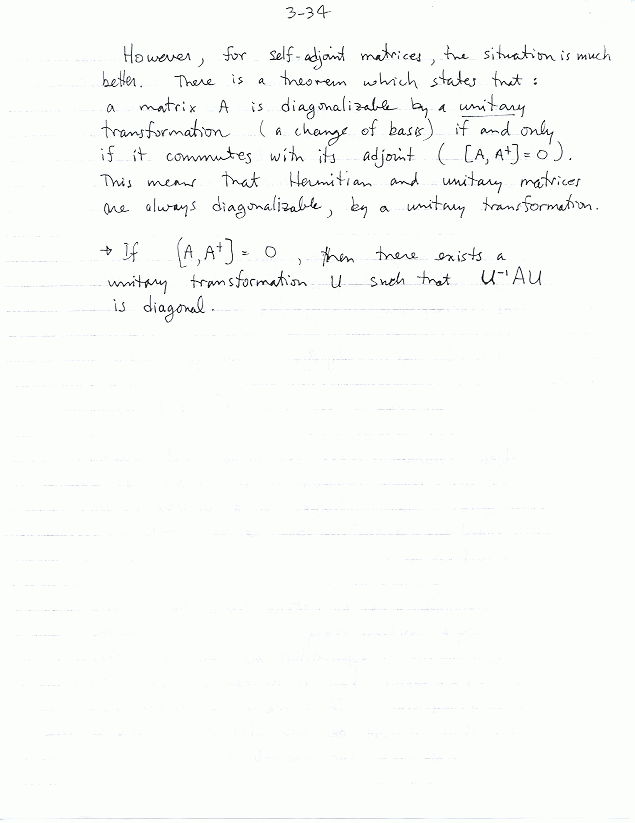 3-34
However, for self-adjoint matrices, the situation is much
better. There is a theorem which states that:
a matrix A is diagonalizable by a unitary
transformation (a change of basis) if and only
if it commutes with its adjoint ([A, A†] = 0).
This means that Hermitian and unitary matrices
are always diagonalizable, by a unitary transformation.
→ If [A, A†] = 0, then there exists a
unitary transformation U such that U⁻¹AU
is diagonal.